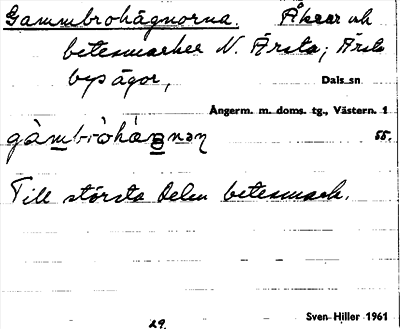 Gammbrohägnorna. Åkrar och
betesmarker N. Ärsta; Ärsta
bys ägor,
Dals sn
Ångerm. m. doms. tg., Västern. 1
55.
Till största delen betesmark.
29.
Sven Hiller 1961